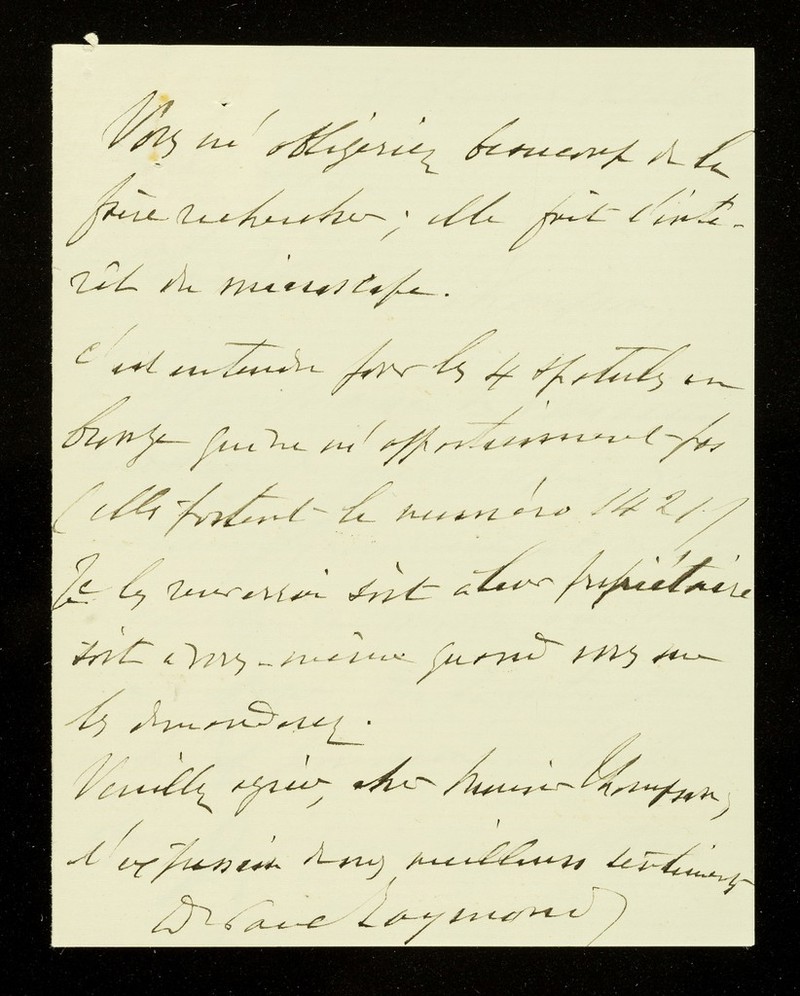 Vous m'obligeriez beaucoup de la
faire rechercher ; elle fait d'inté-
rêt du microscope.
C'est entendu pour les 4 spatules en
bronze qui ne m'appartiennent pas
(elles portent le numéro 1421)
Je les renverrai soit à leur propriétaire
soit à vous-même quand vous me
les demanderez.
Veuillez agréer, cher Monsieur Thompson,
l'expression de mes meilleurs sentiments
Dr Paul Raymond